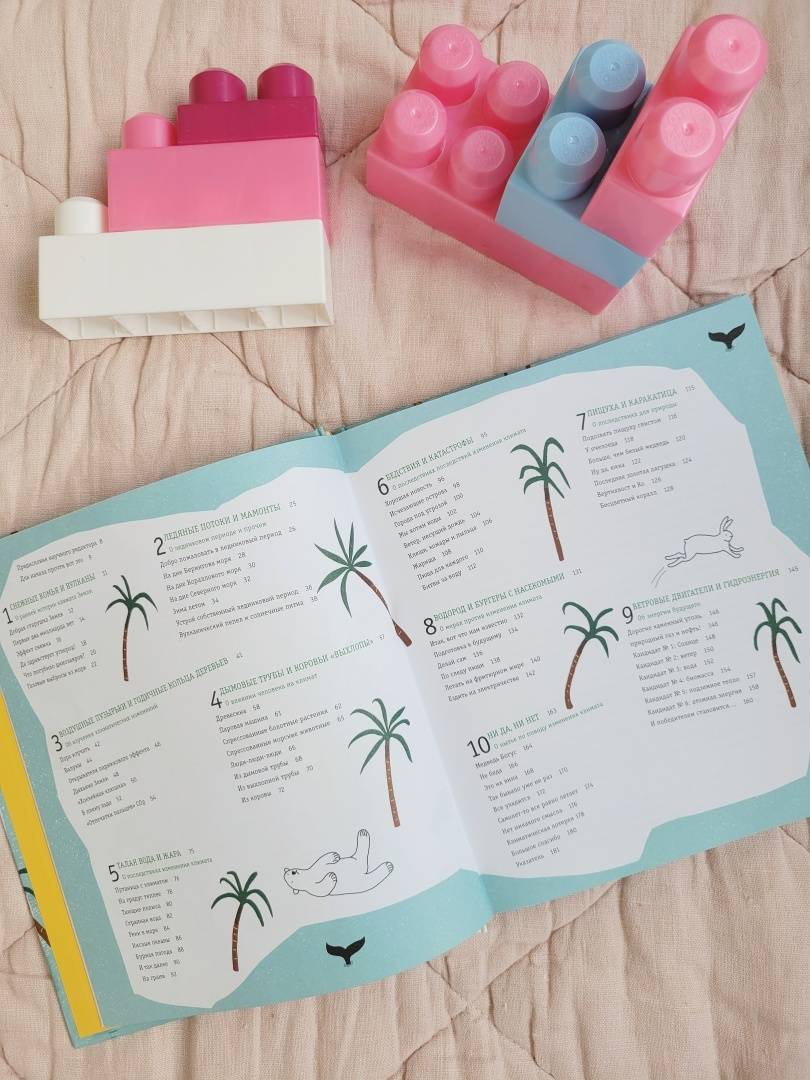 Предисловие научного редактора 8
Для начала прочти вот это 9
1 СНЕЖНЫЕ КОМЬЯ И ВУЛКАНЫ 11
О ранней истории климата Земли
Добрая старушка Земля 12
Первые два миллиарда лет 14
Эффект снежка 16
Да здравствует углерод! 18
Что погубило динозавров? 20
Газовые выбросы из моря 22
2 ЛЕДЯНЫЕ ПОТОКИ И МАМОНТЫ 25
О ледниковом периоде и прочем
Добро пожаловать в ледниковый период 26
На дне Берингова моря 28
На дне Кораллового моря 30
На дне Северного моря 32
Зима летом 34
Устрой собственный ледниковый период 36
Вулканический пепел и солнечные пятна 38
3 ВОЗДУШНЫЕ ПУЗЫРЬКИ И ГОДИЧНЫЕ КОЛЬЦА ДЕРЕВЬЕВ 41
Об изучении климатических изменений
Пора изучать 42
Валуны 44
Открыватели парникового эффекта 46
Дыхание Земли 48
«Хоккейная клюшка» 50
В плену льда 52
«Отпечатки пальцев» CO₂ 54
4 ДЫМОВЫЕ ТРУБЫ И КОРОВЬИ «ВЫХЛОПЫ» 57
О влиянии человека на климат
Древесина 58
Паровая машина 61
Спрессованные болотные растения 62
Спрессованные морские животные 65
Люди-люди-люди 66
Из дымовой трубы 68
Из выхлопной трубы 70
Из коровы 72
5 ТАЛАЯ ВОДА И ЖАРА 75
О последствиях изменения климата
Путаница с климатом 76
На градус теплее 78
Тающие полюса 80
Странная вода 82
Реки в море 84
Кислые океаны 86
Бурная погода 88
И так далее 90
На грани 92
6 БЕДСТВИЯ И КАТАСТРОФЫ 95
О последствиях последствий изменения климата
Хорошая новость 96
Исчезающие острова 98
Города под угрозой 100
Мы хотим воды 102
Ветер, несущий дожди 104
Клещи, комары и пыльца 106
Жарища 108
Пища для каждого 110
Битвы за воду 112
7 ПИЩУХА И КАРАКАТИЦА 115
О последствиях для природы
Подозвать пищуху свистом 116
У пчелоеда 118
Больше, чем белый медведь 120
Ну да, киты 122
Последняя золотая лягушка 124
Вертихвост и Ко 126
Бесцветный коралл 128
8 ВОДОРОД И БУРГЕРЫ С НАСЕКОМЫМИ 131
О мерах против изменения климата
Итак, вот что нам известно 132
Подготовка к будущему 134
Делай сам 136
По следу пищи 138
Летать на фритюрном жире 140
Ездить на электричестве 142
9 ВЕТРОВЫЕ ДВИГАТЕЛИ И ГИДРОЭНЕРГИЯ 145
Об энергии будущего
Дорогие каменный уголь,
природный газ и нефть! 146
Кандидат № 1: Солнце 148
Кандидат № 2: ветер 150
Кандидат № 3: вода 152
Кандидат № 4: биомасса 154
Кандидат № 5: подземное тепло 157
Кандидат № 6: атомная энергия 158
И победителем становится... 160
10 НИ ДА, НИ НЕТ 163
О нытье по поводу изменения климата
Медведь Богус 164
Не беда 166
Это не мы 168
Так бывало уже не раз 170
Все упадется 172
Самолет-то все равно летает 174
Нет никакого смысла 176
Климатическая лотерея 178
Большое спасибо 180
Указатель 181